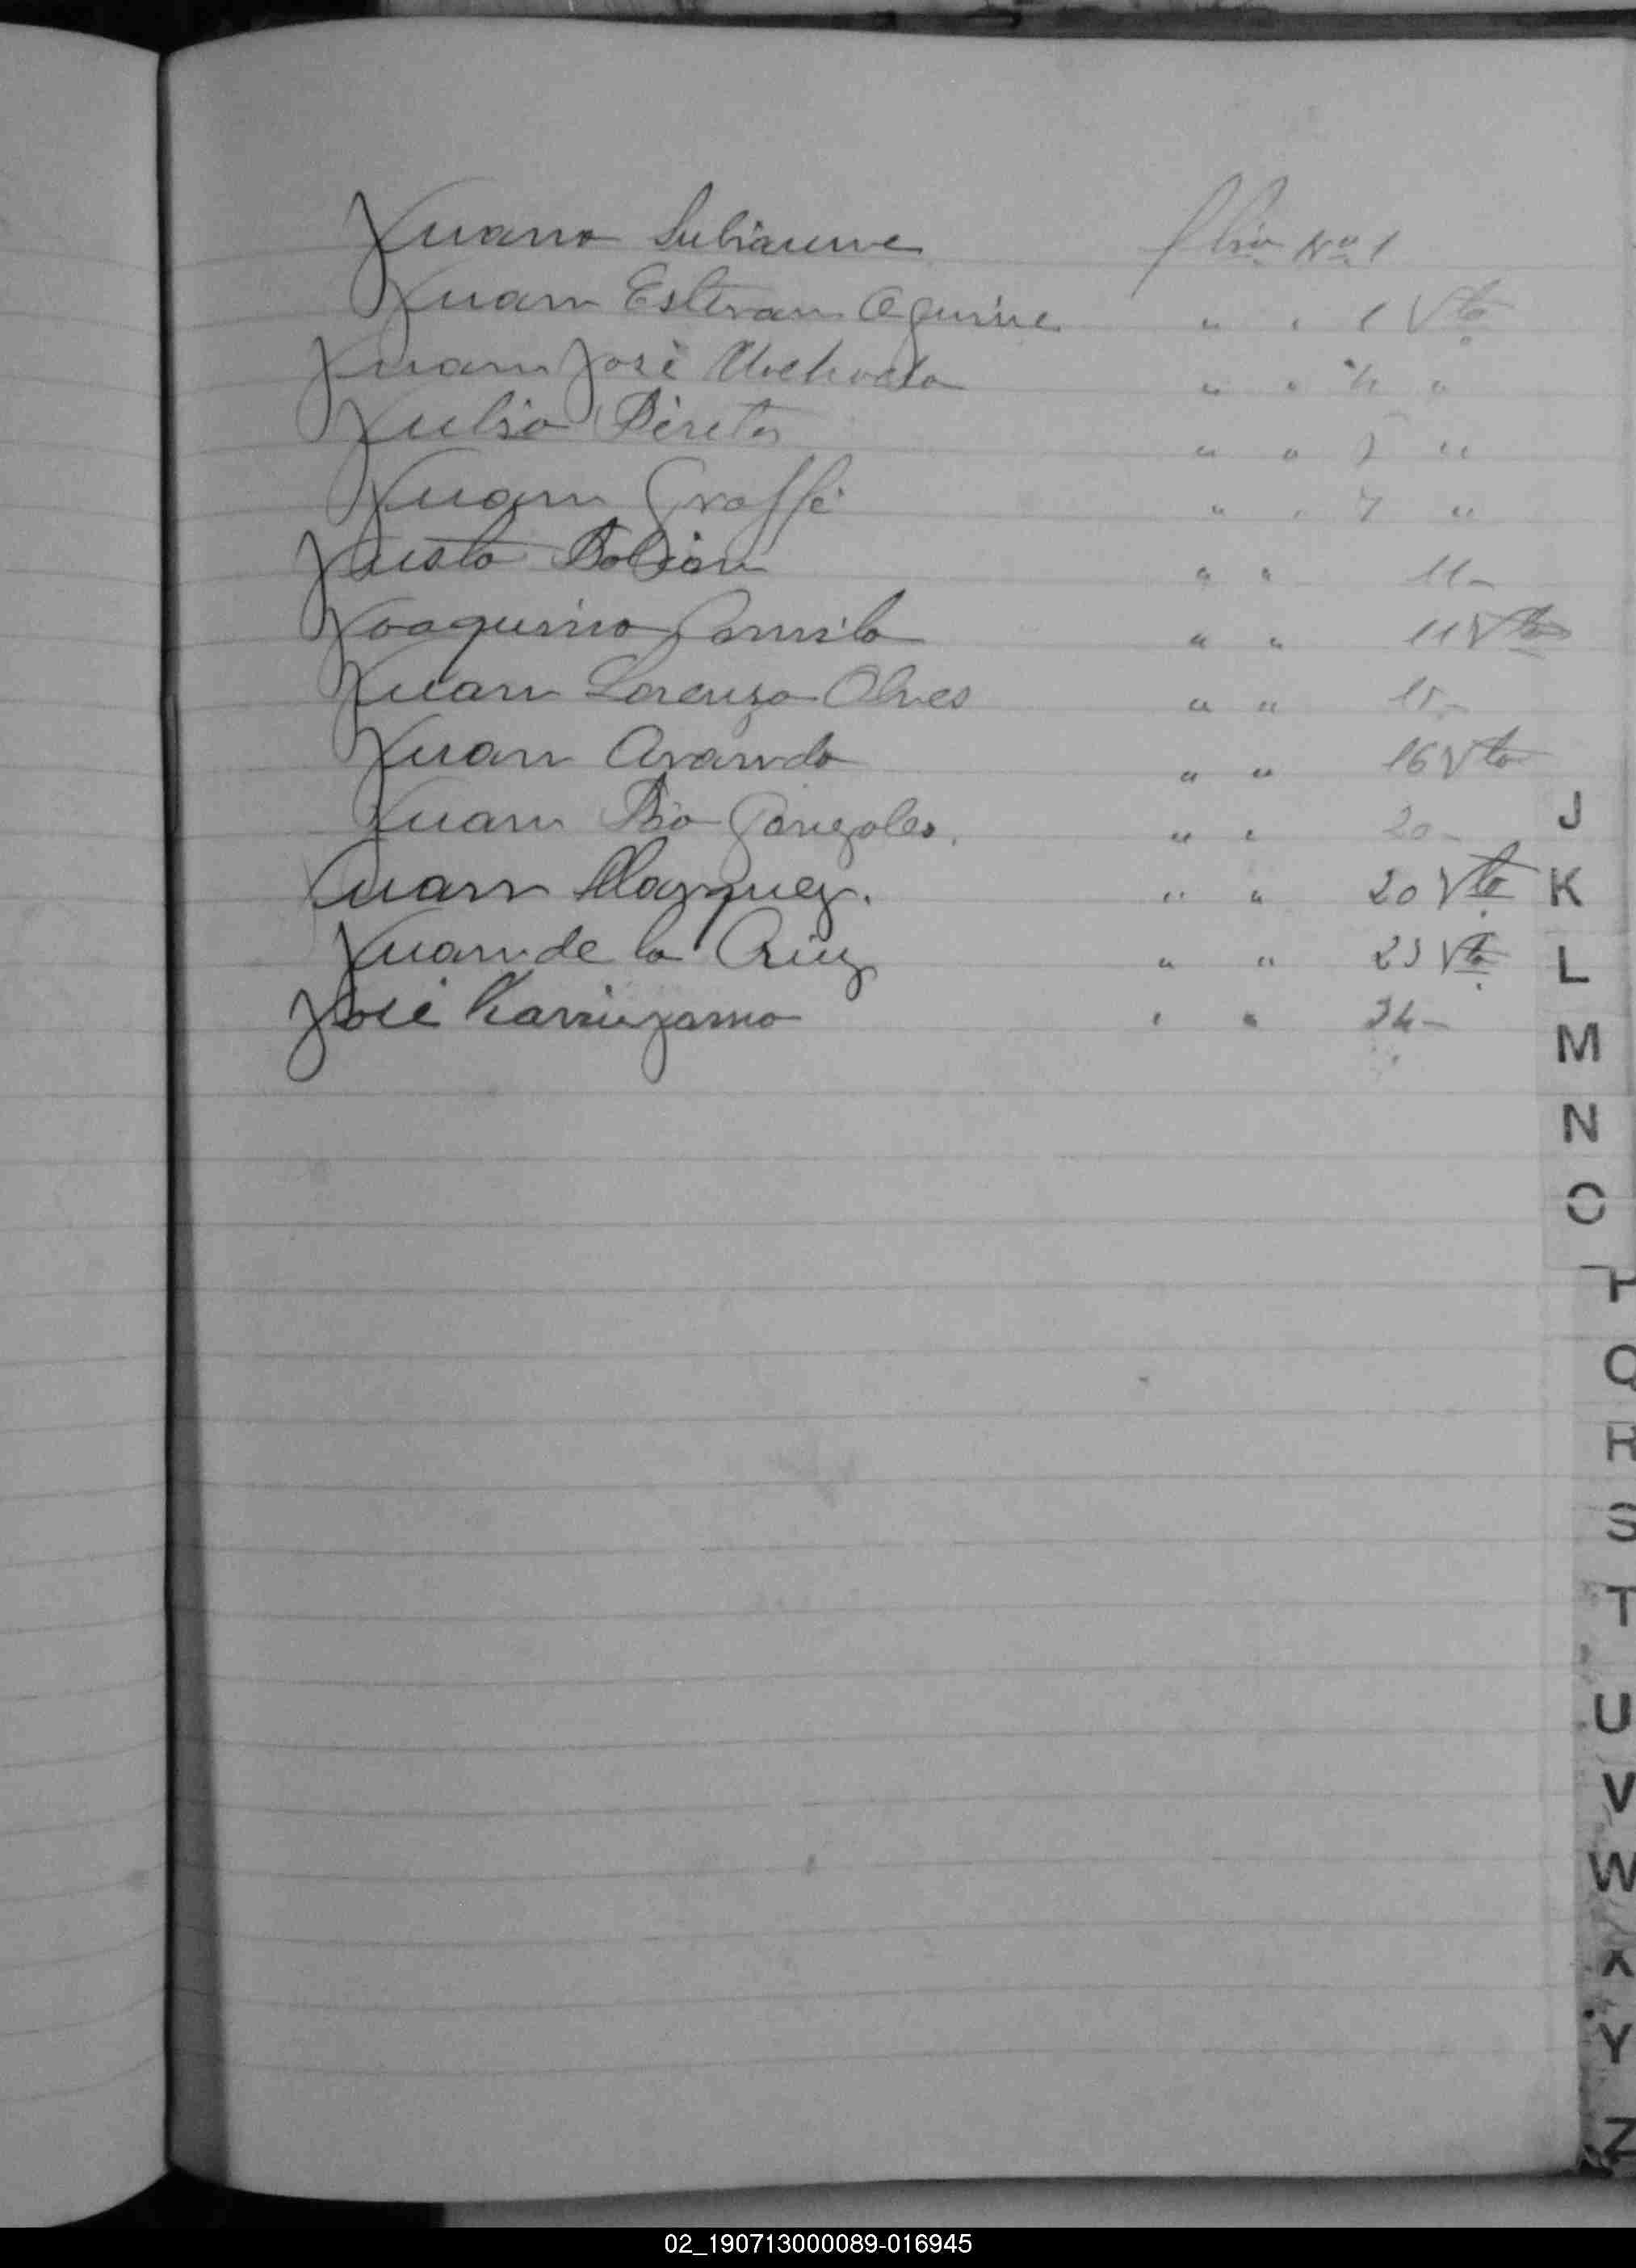 Juana Lubiaurre folio Nº 1
Juan Estevan Aguirre " " 1 Vto
Juan José " " 4 "
Julio Pereto " " 5 "
Juan Graffé " " 7 "
Justo Bolian " " 11-
Joaquino " " 11 Vto
Juan Lorenzo Olives " " 15-
Juan Aranda " " 16 Vto
Juan Pio Gonzales. " " 20-
Juan Marquez. " " 20 Vto
Juan de la Cruz " " 23 Vto
José " " 24-
J
K
L
M
N
O
P
Q
R
S
T
U
V
W
X
Y
Z
02_190713000089-016945